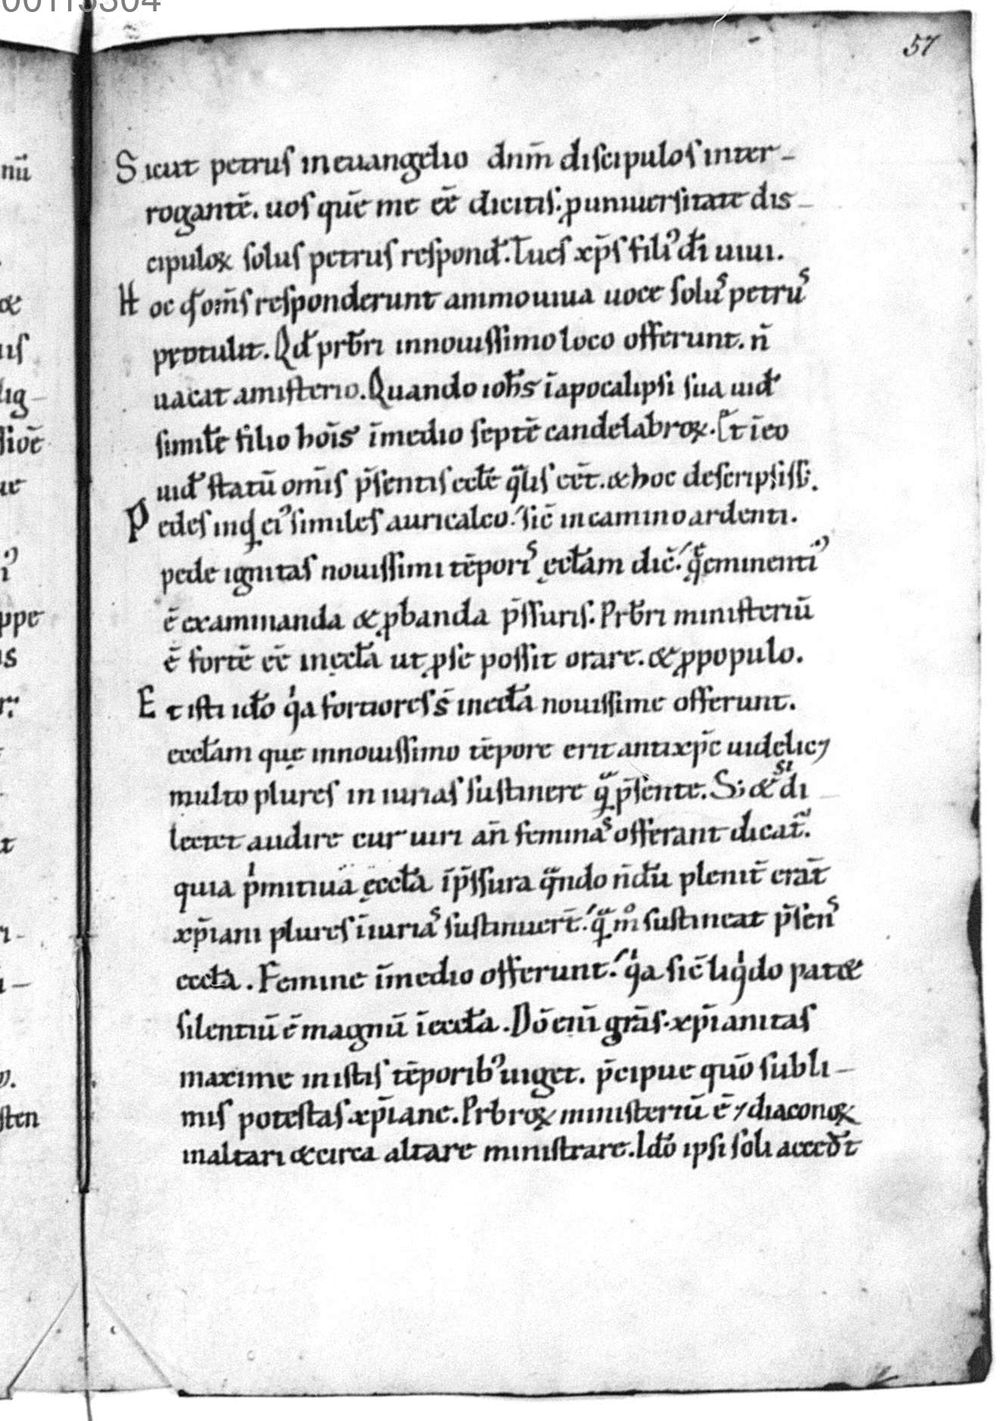 57
Sicut petrus in euangelio dnm̄ discipulos inter-
rogantē. uos quē me eē dicitis: ꝓ uniuersitate dis-
cipuloꝝ solus petrus respond̄. Tu es xp̄s filiꝰ dī uiui.
Hoc qd̄ om̄s responderunt ammouiua uoce solꝰ petrꝰ
protulit. Qd̄ prb̄ri innouissimo loco offerunt. n̄
uacat amisterio. Quando ioh̄s īapocalipsi sua uid̄
simile filio hoīs īmedio septē candelabroꝝ. Et īeo
uid̄ statū om̄is p̄sentis eccl̄e qͣlis eēt. & hoc descripsit.
Pedes inqͥd eiꝰ similes auricalco. sic̄ incamino ardenti.
pede ignitas nouissimi tēporis ęccl̄am dic̄. qͣ eminentiꝰ
ē examinanda & ꝓbanda p̄ssuris. Prb̄ri ministeriū
ē fortē eē inęccl̄a ut ꝓ se possit orare. & ꝓ populo.
Et isti ido qͥa fortiores s̄ ineccl̄a nouissime offerunt.
eccl̄am quę innouissimo tēpore erit antixp̄c uidelic&
multo plures iniurias sustinere qͣ p̄sente. S; & si di
lectet audire cur uiri an̄ feminas offerant dicat̄.
quia pͥmitiua ęccl̄a īp̄ssura qͣndo n̄dū plenit̄ erat̄
xp̄iani plures īiurias sustinuert̄. qͣ mͦ sustineat p̄sens
eccl̄a. Femine īmedio offerunt. qͥa sic̄ liqͥdo pat&
silentiū ē magnū īeccl̄a. Dō enī grās. xp̄ianitas
maxime inistis tēporibꝰ uiget. p̄cipue quō subli-
mis potestas xp̄iane. Prb̄roꝝ ministeriū ē ⁊ diaconoꝝ
inaltari & circa altare ministrare. Ido ipsi soli acced̄t